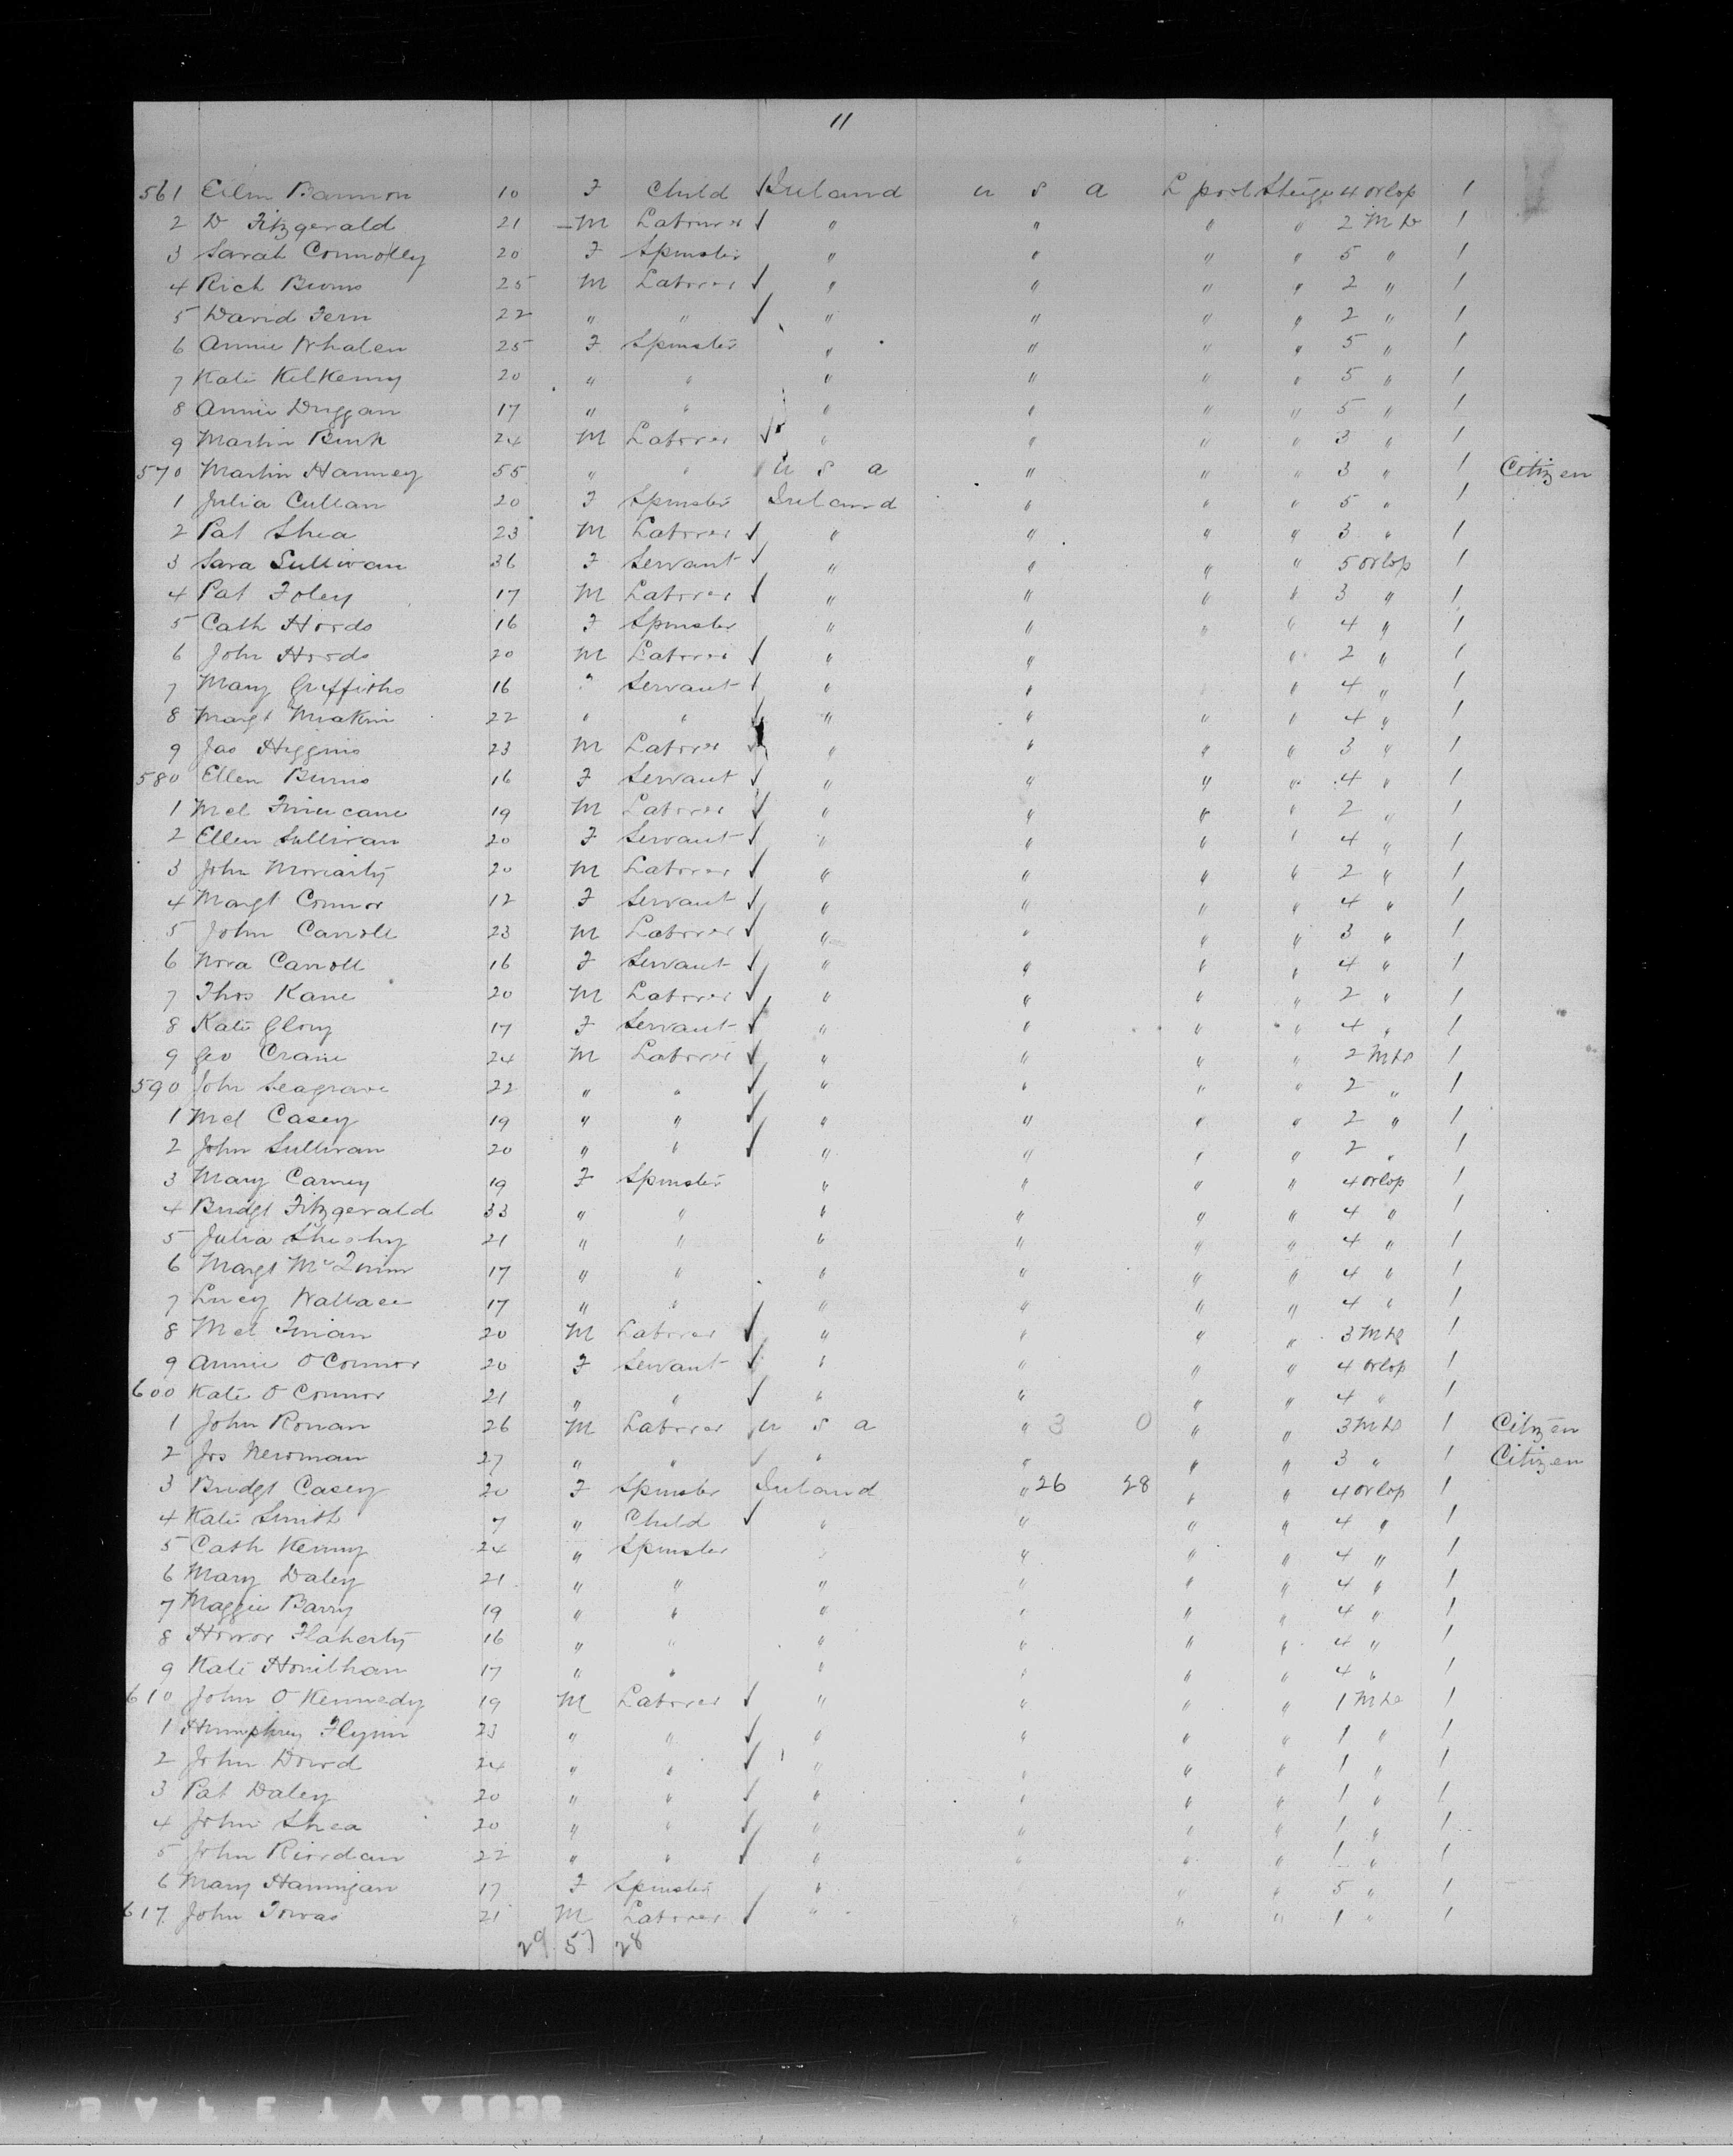 11
561 Ellen Bannon 10 F Child Ireland U S A L pool Steige 4 orlop 1
2 D Fitzgerald 21 M Labourer " " " " 2 M De 1
3 Sarah Connolly 20 F Spinster " " " " 5 " 1
4 Rich Burns 25 M Laborer " " " " 2 " 1
5 David Fern 22 " " " " " " 2 " 1
6 Annie Whalen 25 F Spinster " " " " 5 " 1
7 Kate Kilkenny 20 " " " " " " 5 " 1
8 Annie Duggan 17 " " " " " " 5 " 1
9 Martin Burk 24 M Laborer " " " " 3 " 1
570 Martin Hanney 55 " " U S A " " " 3 " 1 Citizen
1 Julia Cullan 20 F Spinster Ireland " " " 5 " 1
2 Pat Shea 23 M Laborer " " " " 3 " 1
3 Sara Sullivan 36 F Servant " " " " 5 orlop 1
4 Pat Foley 17 M Laborer " " " " 3 " 1
5 Cath Hords 16 F Spinster " " " " 4 " 1
6 John Hords 20 M Laborer " " " 2 " 1
7 Mary Griffiths 16 " Servant " " " " 4 " 1
8 Margt 22 " " " " " " 4 " 1
9 Jas Higgins 23 M Laborer " " " " 3 " 1
580 Ellen Burns 16 F Servant " " " " 4 " 1
1 Mcl Finucane 19 M Laborer " " " " 2 " 1
2 Ellen Sullivan 20 F Servant " " " " 4 " 1
3 John Moriarty 20 M Laborer " " " " 2 " 1
4 Margt Connor 12 F Servant " " " " 4 " 1
5 John Carroll 23 M Laborer " " " " 3 " 1
6 Nora Carroll 16 F Servant " " " " 4 " 1
7 Thos Kane 20 M Laborer " " " " 2 " 1
8 Kate Glory 17 F Servant " " " " 4 " 1
9 Geo Crane 24 M Laborer " " " " 2 M De 1
590 John Seagrave 22 " " " " " " 2 " 1
1 Mcl Casey 19 " " " " " " 2 " 1
2 John Sullivan 20 " " " " " " 2 " 1
3 Mary Carney 19 F Spinster " " " " 4 orlop 1
4 Bridgt Fitzgerald 33 " " " " " " 4 " 1
5 Julia Sheehy 21 " " " " " " 4 " 1
6 Margt 17 " " " " " " 4 " 1
7 Lucy Wallace 17 " " " " " " 4 " 1
8 Mcl Finan 20 M Laborer " " " " 3 M De 1
9 Annie O Connor 20 F Servant " " " " 4 orlop 1
600 Kate O Connor 21 " " " " " " 4 " 1
1 John Ronan 26 M Laborer U S A " 3 0 " " 3 M De 1 Citizen
2 Jos Newman 27 " " " " " " 3 " 1 Citizen
3 Bridgt Casey 20 F Spinster Ireland " 26 28 " " 4 orlop 1
4 Kate Smith 7 " Child " " " " 4 " 1
5 Cath Kenny 24 " Spinster " " " " 4 " 1
6 Mary Daley 21 " " " " " " 4 " 1
7 Maggie Barry 19 " " " " " " 4 " 1
8 Honor Flaherty 16 " " " " " " 4 " 1
9 Kate Honithan 17 " " " " " " 4 " 1
610 John O Kennedy 19 M Laborer " " " " 1 M De 1
1 Humphrey Flynn 23 " " " " " " 1 " 1
2 John Dowd 24 " " " " " " 1 " 1
3 Pat Daley 20 " " " " " " 1 " 1
4 John Shea 20 " " " " " " 1 " 1
5 John Riordan 22 " " " " " " 1 " 1
6 Mary Hannigan 17 F Spinster " " " 5 " 1
617 John 21 M Laborer " " " " 1 " 1
29 57 28
SAFETY